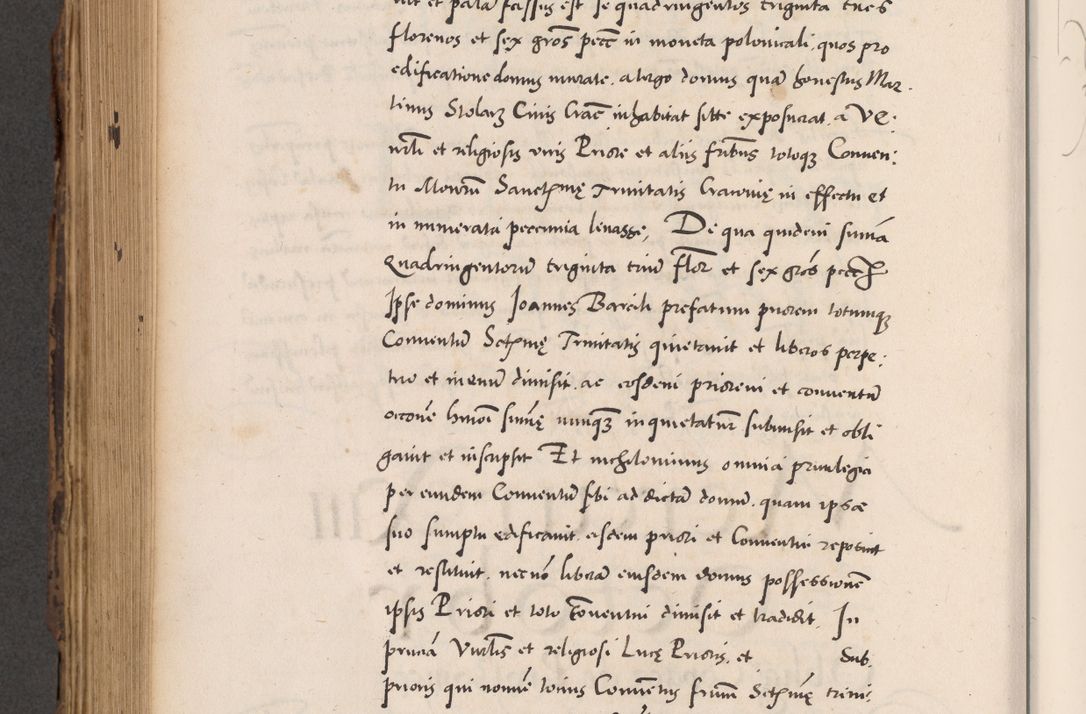 et palam fassus est se quadringentos triginta tres
florenos et sex gros pecc in moneta polonicali, quos pro
edificatione domus murate, a tergo domus quam honestus Mar
tinus Stolarz Civis Crac inhabitat sitte exposuerat, a Ve:
nrli et religiosis viris Priore et aliis fribus totoque Conven:
tu Monrm Sanctme Trinitatis Cracovie in effectu et
in numerata peccunia levasse, De qua quidem suma
Quadringentorum triginta trium flor et sex gros pecc
Ipse dominus Joannes Barcik prefatum priorem totumque
Conventum Sctme Trinitatis quietavit et liberos perpe:
tuo et in evum dimisit, ac eosdem priorem et conventum
occone hmoi sume nunquam inquietatur submisit et obli
gavit et inscripsit Et nichilominus omnia privilegia
per eundem Conventum sibi ad dictam domum, quam ipse
suo sumptu edificavit, eisdem priori et Conventui reposuit
et restituit, necno liberam eiusdem domus possessionem
ipsis Priori et toto Conventui dimisit et tradidit, In
pncia Vnrlis et religiosi Luce Prioris, et Sub.
prioris qui nomine totius Conventus fratrum Sctme trini: